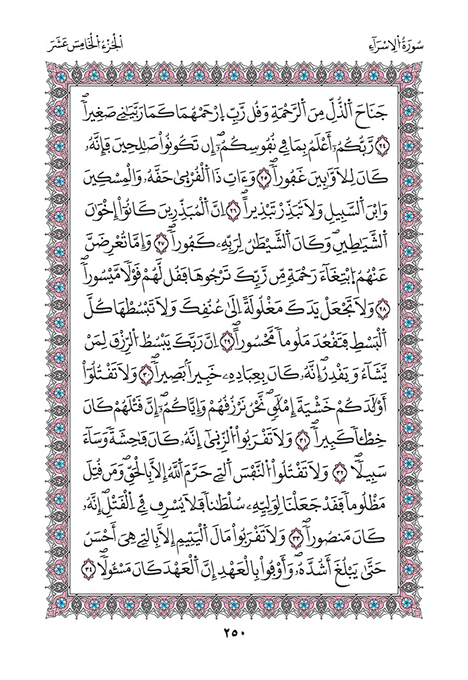 سُورَةُ الإِسْرَاءِ
الجُزْءُ الْخَامِسَ عَشَرَ
جَنَاحَ اَلذُّلِّ مِنَ اَلرَّحْمَةِ وَقُل رَّبِّ اِرْحَمْهُمَا كَمَا رَبَّيَٰنِے صَغِيراٗۖ
٢٤ رَّبُّكُمُۥٓ أَعْلَمُ بِمَا فِے نُفُوسِكُمُۥٓ إِن تَكُونُواْ صَٰلِحِينَ فَإِنَّهُۥ
كَانَ لِلَاوَّٰبِينَ غَفُوراٗۖ ٢٥ وَءَاتِ ذَا اَلْقُرْبَىٰ حَقَّهُۥ وَالْمِسْكِينَ
وَابْنَ اَلسَّبِيلِ وَلَا تُبَذِّرْ تَبْذِيراًۖ ٢٦ اِنَّ اَلْمُبَذِّرِينَ كَانُوٓاْ إِخْوَٰنَ
اَلشَّيَٰطِينِۖ وَكَانَ اَلشَّيْطَٰنُ لِرَبِّهِۦ كَفُوراٗۖ ٢٧ وَإِمَّا تُعْرِضَنَّ
عَنْهُمُ اُبْتِغَآءَ رَحْمَةٖ مِّن رَّبِّكَ تَرْجُوهَا فَقُل لَّهُمْ قَوْلاٗ مَّيْسُوراٗۖ
٢٨ وَلَا تَجْعَلْ يَدَكَ مَغْلُولَةً اِلَىٰ عُنُقِكَ وَلَا تَبْسُطْهَا كُلَّ
اَلْبَسْطِ فَتَقْعُدَ مَلُوماٗ مَّحْسُوراًۖ ٢٩ اِنَّ رَبَّكَ يَبْسُطُ اُلرِّزْقَ لِمَنْ
يَّشَآءُ وَيَقْدِرُۖ إِنَّهُۥ كَانَ بِعِبَادِهِۦ خَبِيراَۢ بَصِيراٗۖ ٣٠ وَلَا تَقْتُلُوٓاْ
أَوْلَٰدَكُمْ خَشْيَةَ إِمْلَٰقٖۖ نَّحْنُ نَرْزُقُهُمْ وَإِيَّاكُمُۥٓۖ إِنَّ قَتْلَهُمْ كَانَ
خِطْـٔاٗ كَبِيراٗۖ ٣١ وَلَا تَقْرَبُواْ اُلزِّنَىٰٓ إِنَّهُۥ كَانَ فَٰحِشَةٗ وَسَآءَ
سَبِيلاٗۖ ٣٢ وَلَا تَقْتُلُواْ اُلنَّفْسَ اَلتِے حَرَّمَ اَللَّهُ إِلَّا بِالْحَقِّۖ وَمَن قُتِلَ
مَظْلُوماٗ فَقَدْ جَعَلْنَا لِوَلِيِّهِۦ سُلْطَٰناٗ فَلَا يُسْرِف فِّے اِلْقَتْلِۖ إِنَّهُۥ
كَانَ مَنصُوراٗۖ ٣٣ وَلَا تَقْرَبُواْ مَالَ اَلْيَتِيمِ إِلَّا بِالتِے هِيَ أَحْسَنُ
حَتَّىٰ يَبْلُغَ أَشُدَّهُۥۖ وَأَوْفُواْ بِالْعَهْدِ إِنَّ اَلْعَهْدَ كَانَ مَسْـُٔولاٗۖ ٣٤
٢٥٠